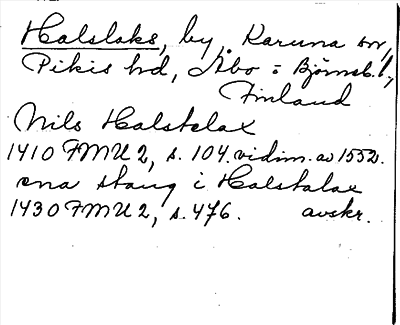 Halslaks, by, Karuna sn,
Pikis hd, Åbo o Björneb. l,
Finland
Nils Halstelax
1410 FMU 2, s. 104. vidim. av 1552.
ena stang i Halstalax
1430 FMU 2, s. 476. avskr.